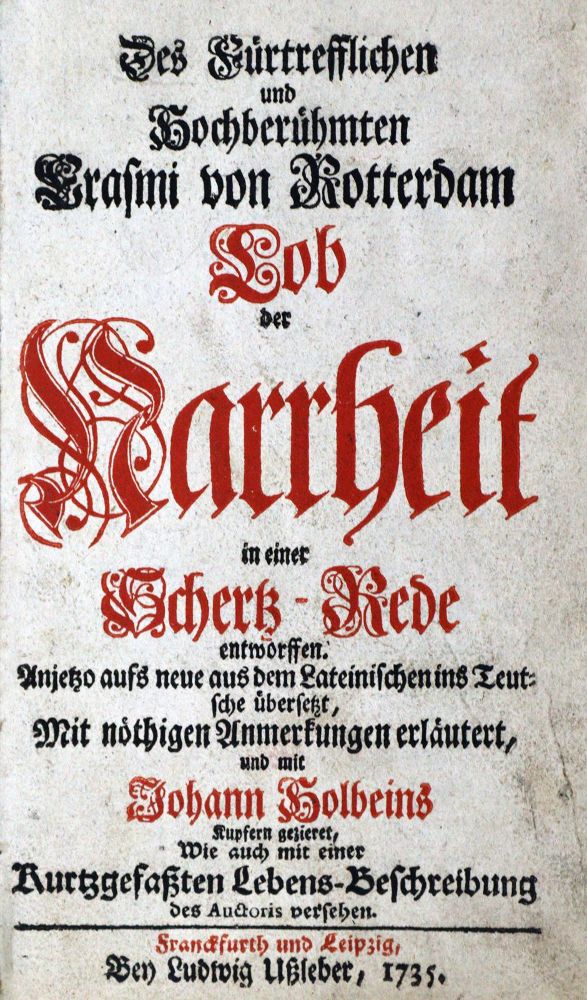 Des Fürtrefflichen
und
Hochberühmten
Erasmi von Rotterdam
Lob
der
Narrheit
in einer
Schertz-Rede
entworffen.
Anjetzo aufs neue aus dem Lateinischen ins Teut-
sche übersetzt,
Mit nöthigen Anmerkungen erläutert,
und mit
Johann Holbeins
Kupfern gezieret,
Wie auch mit einer
Kurtzgefaßten Lebens-Beschreibung
des Auctoris versehen.
Franckfurth und Leipzig,
Bey Ludwig Ußleber, 1735.